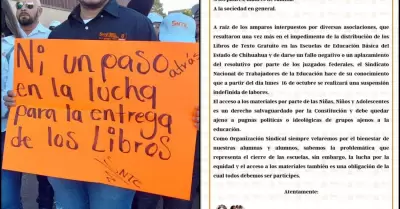 Ni un paso atrás
en la lucha
para la entrega
de los Libros
SNTE
A la sociedad en general.
A raíz de los amparos interpuestos por diversas asociaciones, que
resultaron una vez más en el impedimento de la distribución de los
Libros de Texto Gratuito en las Escuelas de Educación Básica del
Estado de Chihuahua y de darse un fallo negativo o un aplazamiento
del resolutivo por parte de los juzgados federales, el Sindicato
Nacional de Trabajadores de la Educación hace de su conocimiento
que a partir del día lunes 16 de octubre se realizará una suspensión
indefinida de labores.
El acceso a los materiales por parte de las Niñas, Niños y Adolescentes
es un derecho salvaguardado por la Constitución y debe quedar
ajeno a pugnas políticas o ideológicas de grupos ajenos a la
educación.
Como Organización Sindical siempre velaremos por el bienestar de
nuestras alumnas y alumnos, sabemos la problemática que
representa el cierre de las escuelas, sin embargo, la lucha por la
equidad y el acceso a los materiales también es una obligación de la
cual todos debemos ser partícipes.
Atentamente: